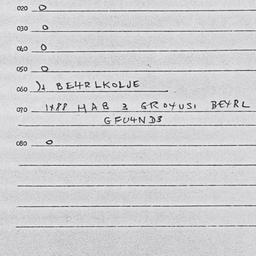 020 0
030 0
040 0
050 0
060 )1 BE4RLKOLJE
070 1X88 HAB 3 GROYUSI BEYRL
GFU4ND3
080 0